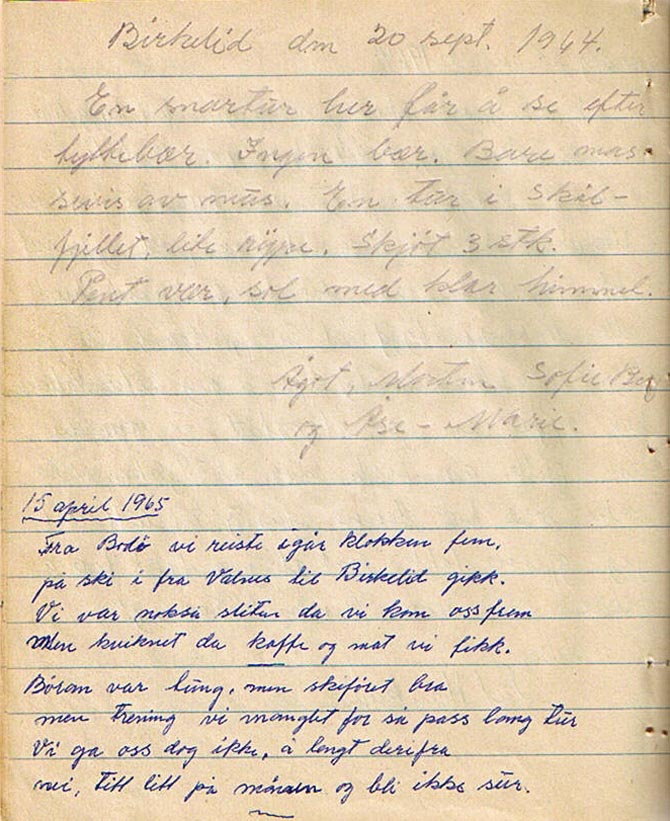 Birkelid den 20 sept. 1964.
En snartur her før å se efter
tyttebær. Ingen bær. Bare mas-
sevis av mus. En tur i Skål-
fjellet, lite rype. Skjøt 3 stk.
Pent vær, sol med klar himmel.
Ågot, Morten Sofie
og Åse-Marie.
15 april 1965
Fra Bodö vi reiste igår klokken fem,
på ski i fra Valnes til Birkelid gikk.
Vi var noksa slitne da vi kom oss frem
Men kviknet da kaffe og mat vi fikk.
Böran var tung, men skiföret bra
men trening vi manglet for så pass lang tur
Vi ga oss dog ikke, å langt derifra
nei, titt litt på månen og bli ikke sur.